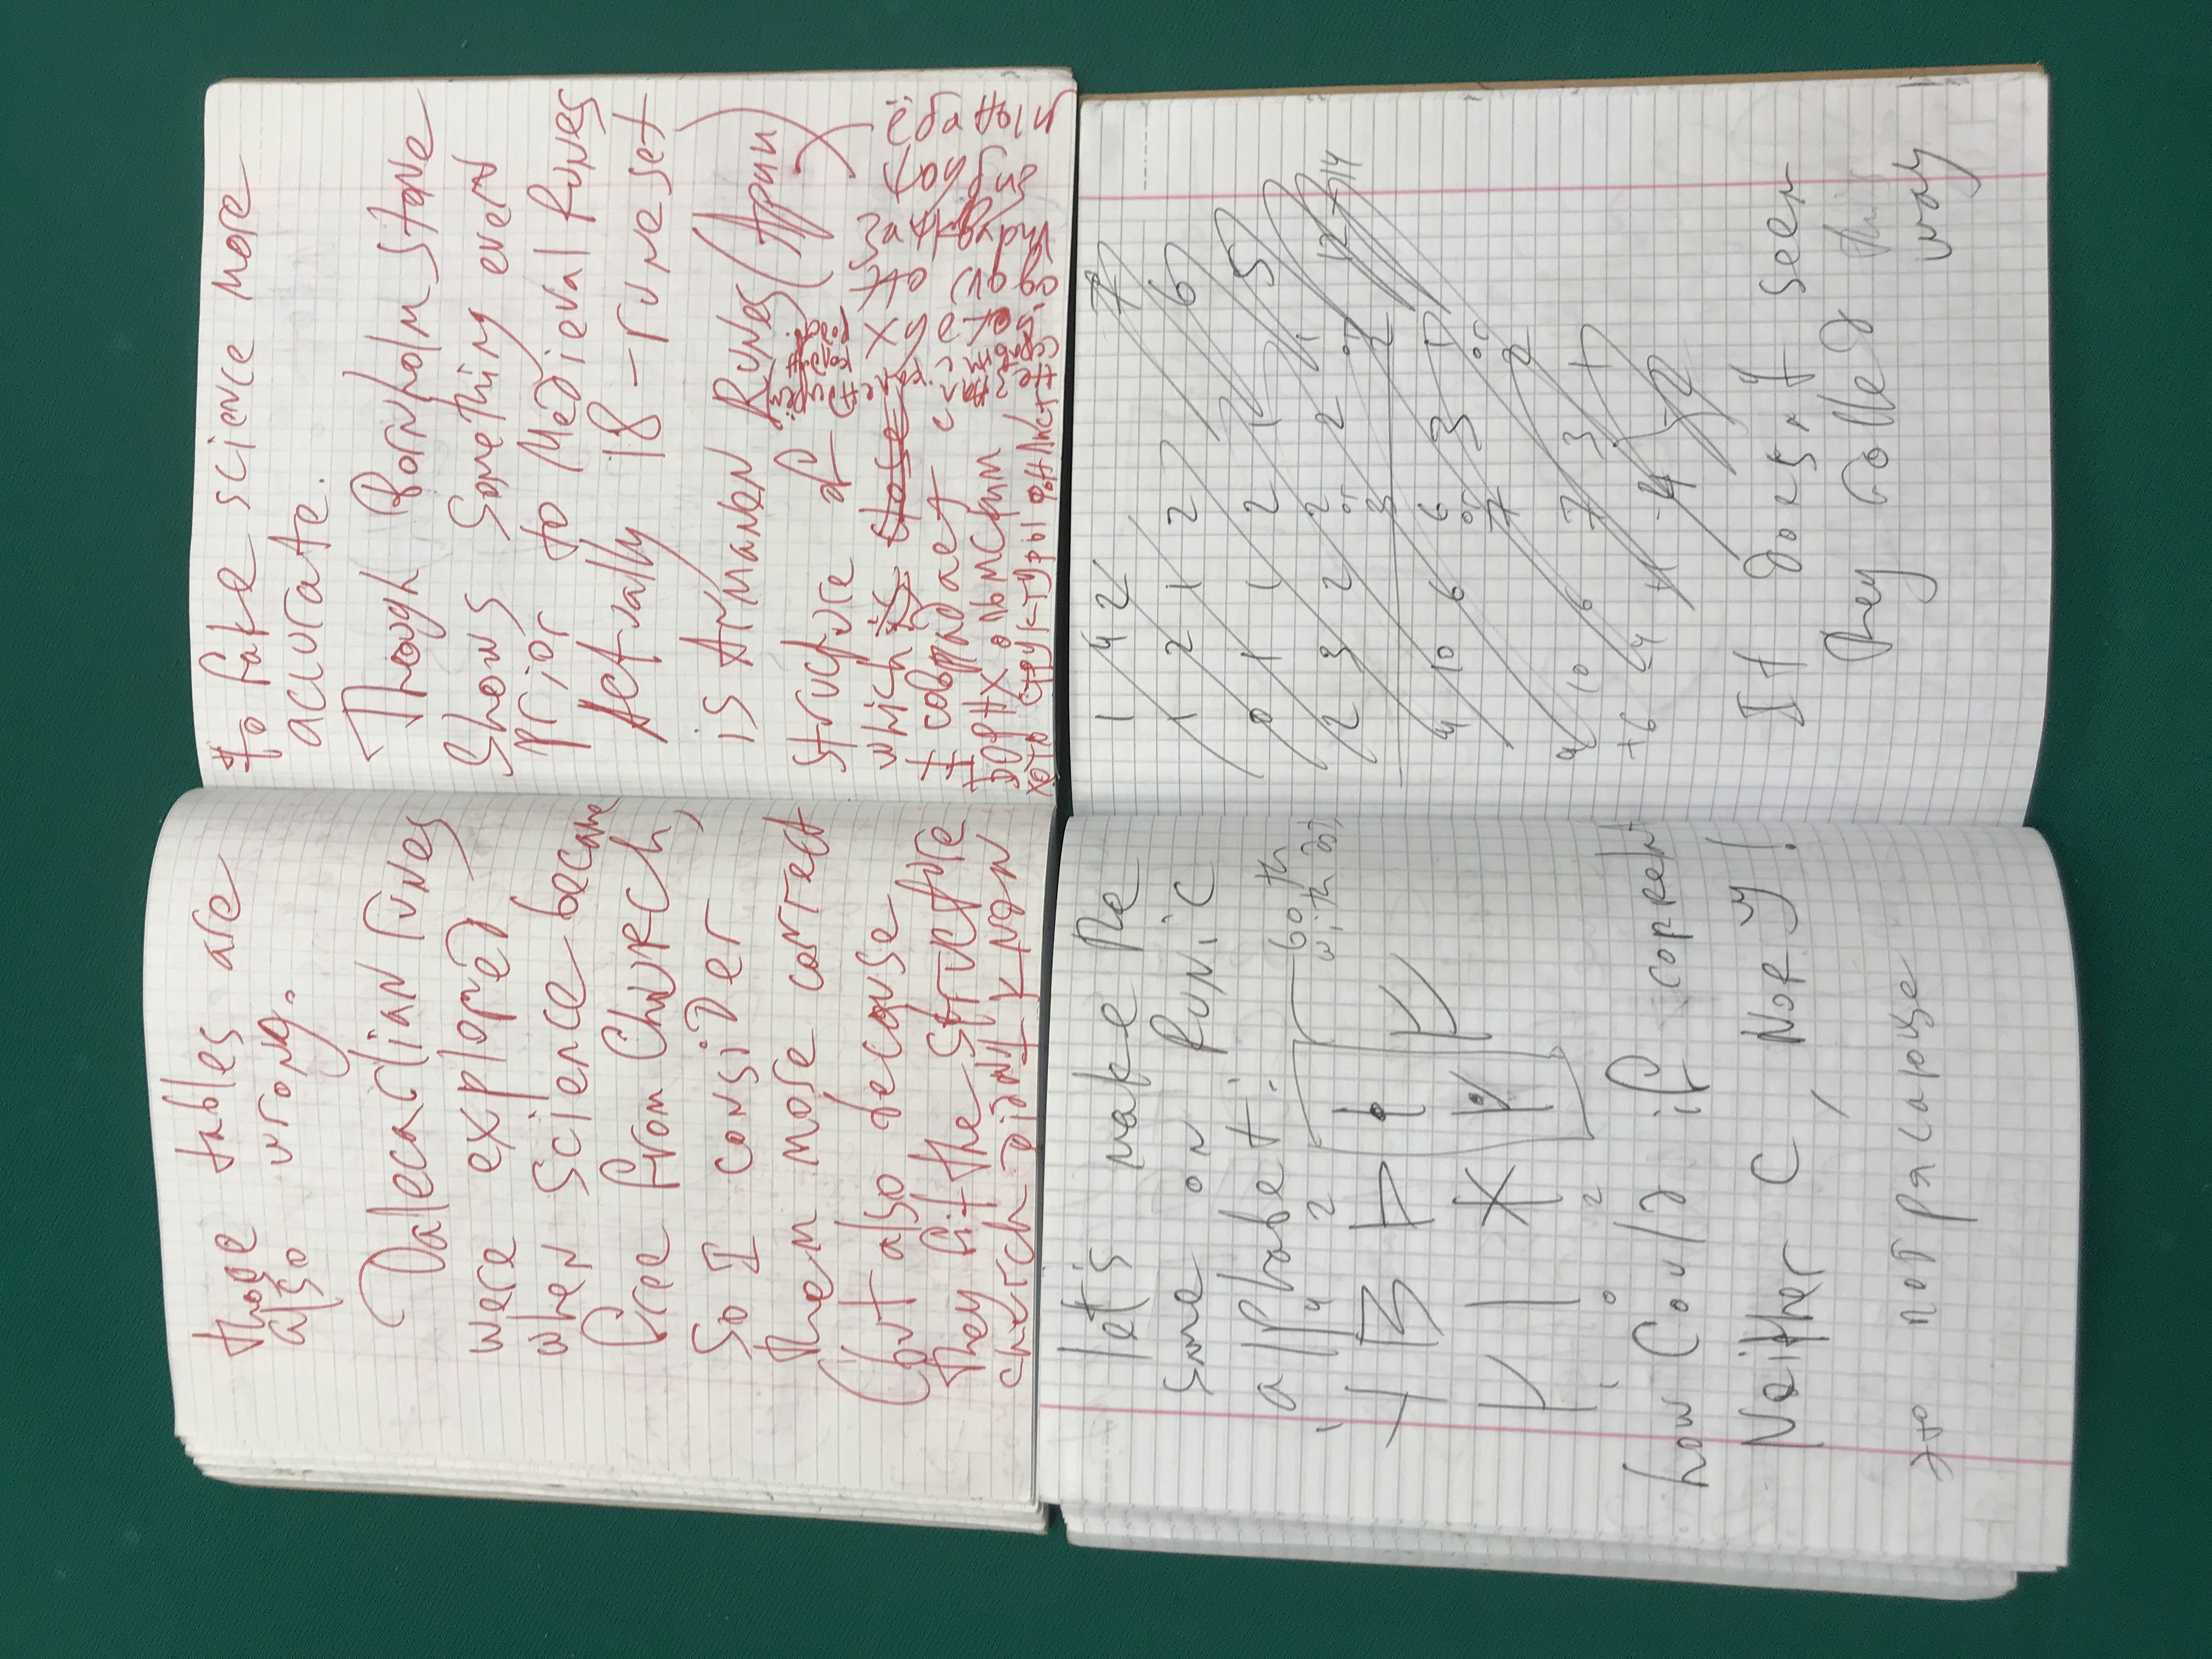 those tables are
also wrong.
Dalecarlian runes
were explored
when science became
free from Church,
So I consider
them more correct
(but also because
they fit the structure
church didn't know
to fake science more
accurate.
Though Bornholm stone
shows something even
prior to Medieval Runes
Actually 18-rune set
is Armanen Runes (Арии)
structure of
which is close
± совпадает с
Борнхольмским,
хотя структуры фон Лист
let's make the
same on Runic
alphabet:
1 4 2 both
with dot
1 0 2
how Could if correct
Neither C, Nor У!
это потрясающе
1 4 2 7
1 2 1 2 6
0 1 1 2 1 5
2 3 2 2 or 3 2 1 or 2 12 – 14
4 10 6 6 or 7 3 1 or 2
10 6 7 3 1
+6 -4 +1 -4 -2
It doesn't seem
they rolled this
way